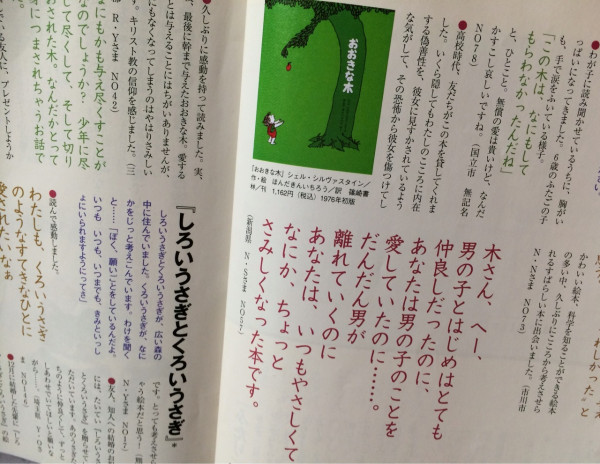 ●わが子に読み聞かせているうちに、胸がい
っぱいになってきました。6歳のふたごの子
も、手で涙をふいている様子。
「この木は、なにもして
もらわなかったんだね」
と、ひとこと。無償の愛は貴いけれど、なんだ
かすこし哀しいですね。
（国立市　無記名
NO78）
●高校時代、友だちがこの本を貸してくれま
した。いくら隠してもわたしのこころに内在
する偽善性を、彼女に見すかされているよう
な気がして、その恐怖から彼女を傷つけてし
かわいい絵本、科学を知ることができる絵本
の多い中、久しぶりにこころから考えさせら
れるすばらしい本に出会いました。（市川市
N・Nさま　NO73）
おおきな木
『おおきな木』シェル・シルヴァスタイン／
作・絵　ほんだきんいちろう／訳　篠崎書
林／刊　1,162円（税込）1976年初版
木さん、へー、
男の子とはじめはとても
仲良しだったのに、
あなたは男の子のことを
愛していたのに……。
だんだん男が
離れていくのに
あなたは、いつもやさしくて
なにか、ちょっと
さみしくなった本です。
（新潟県　N・Sさま　NO57）
久しぶりに感動を持って読みました。実、
、最後に幹まで与えたおおきな木。愛する
とは与えることにはちがいありませんが、
にもなくなってしまうのはやはりさみしい
す。キリスト教の信仰を感じました。（三
R・Yさま　NO42）
なにもかも与え尽くすことが
なのでしょうか？　少年に尽
して尽くして、そして切り
おされた木。なんだかとって
身につまされちゃうお話で
いる友人に、プレゼントしようか
『しろいうさぎとくろいうさぎ』＊
しろいうさぎとくろいうさぎが、広い森の
中に住んでいました。くろいうさぎが、なに
かをじっと考えこんでいます。わけを聞く
と……「ぼく、願いごとをしているんだよ。
いつも　いつも、いつまでも、きみといっし
ょにいられますようにってさ」
●読んで感動しました。
わたしも、くろいうさぎ
のようなすてきなひとに
愛されたいなぁ